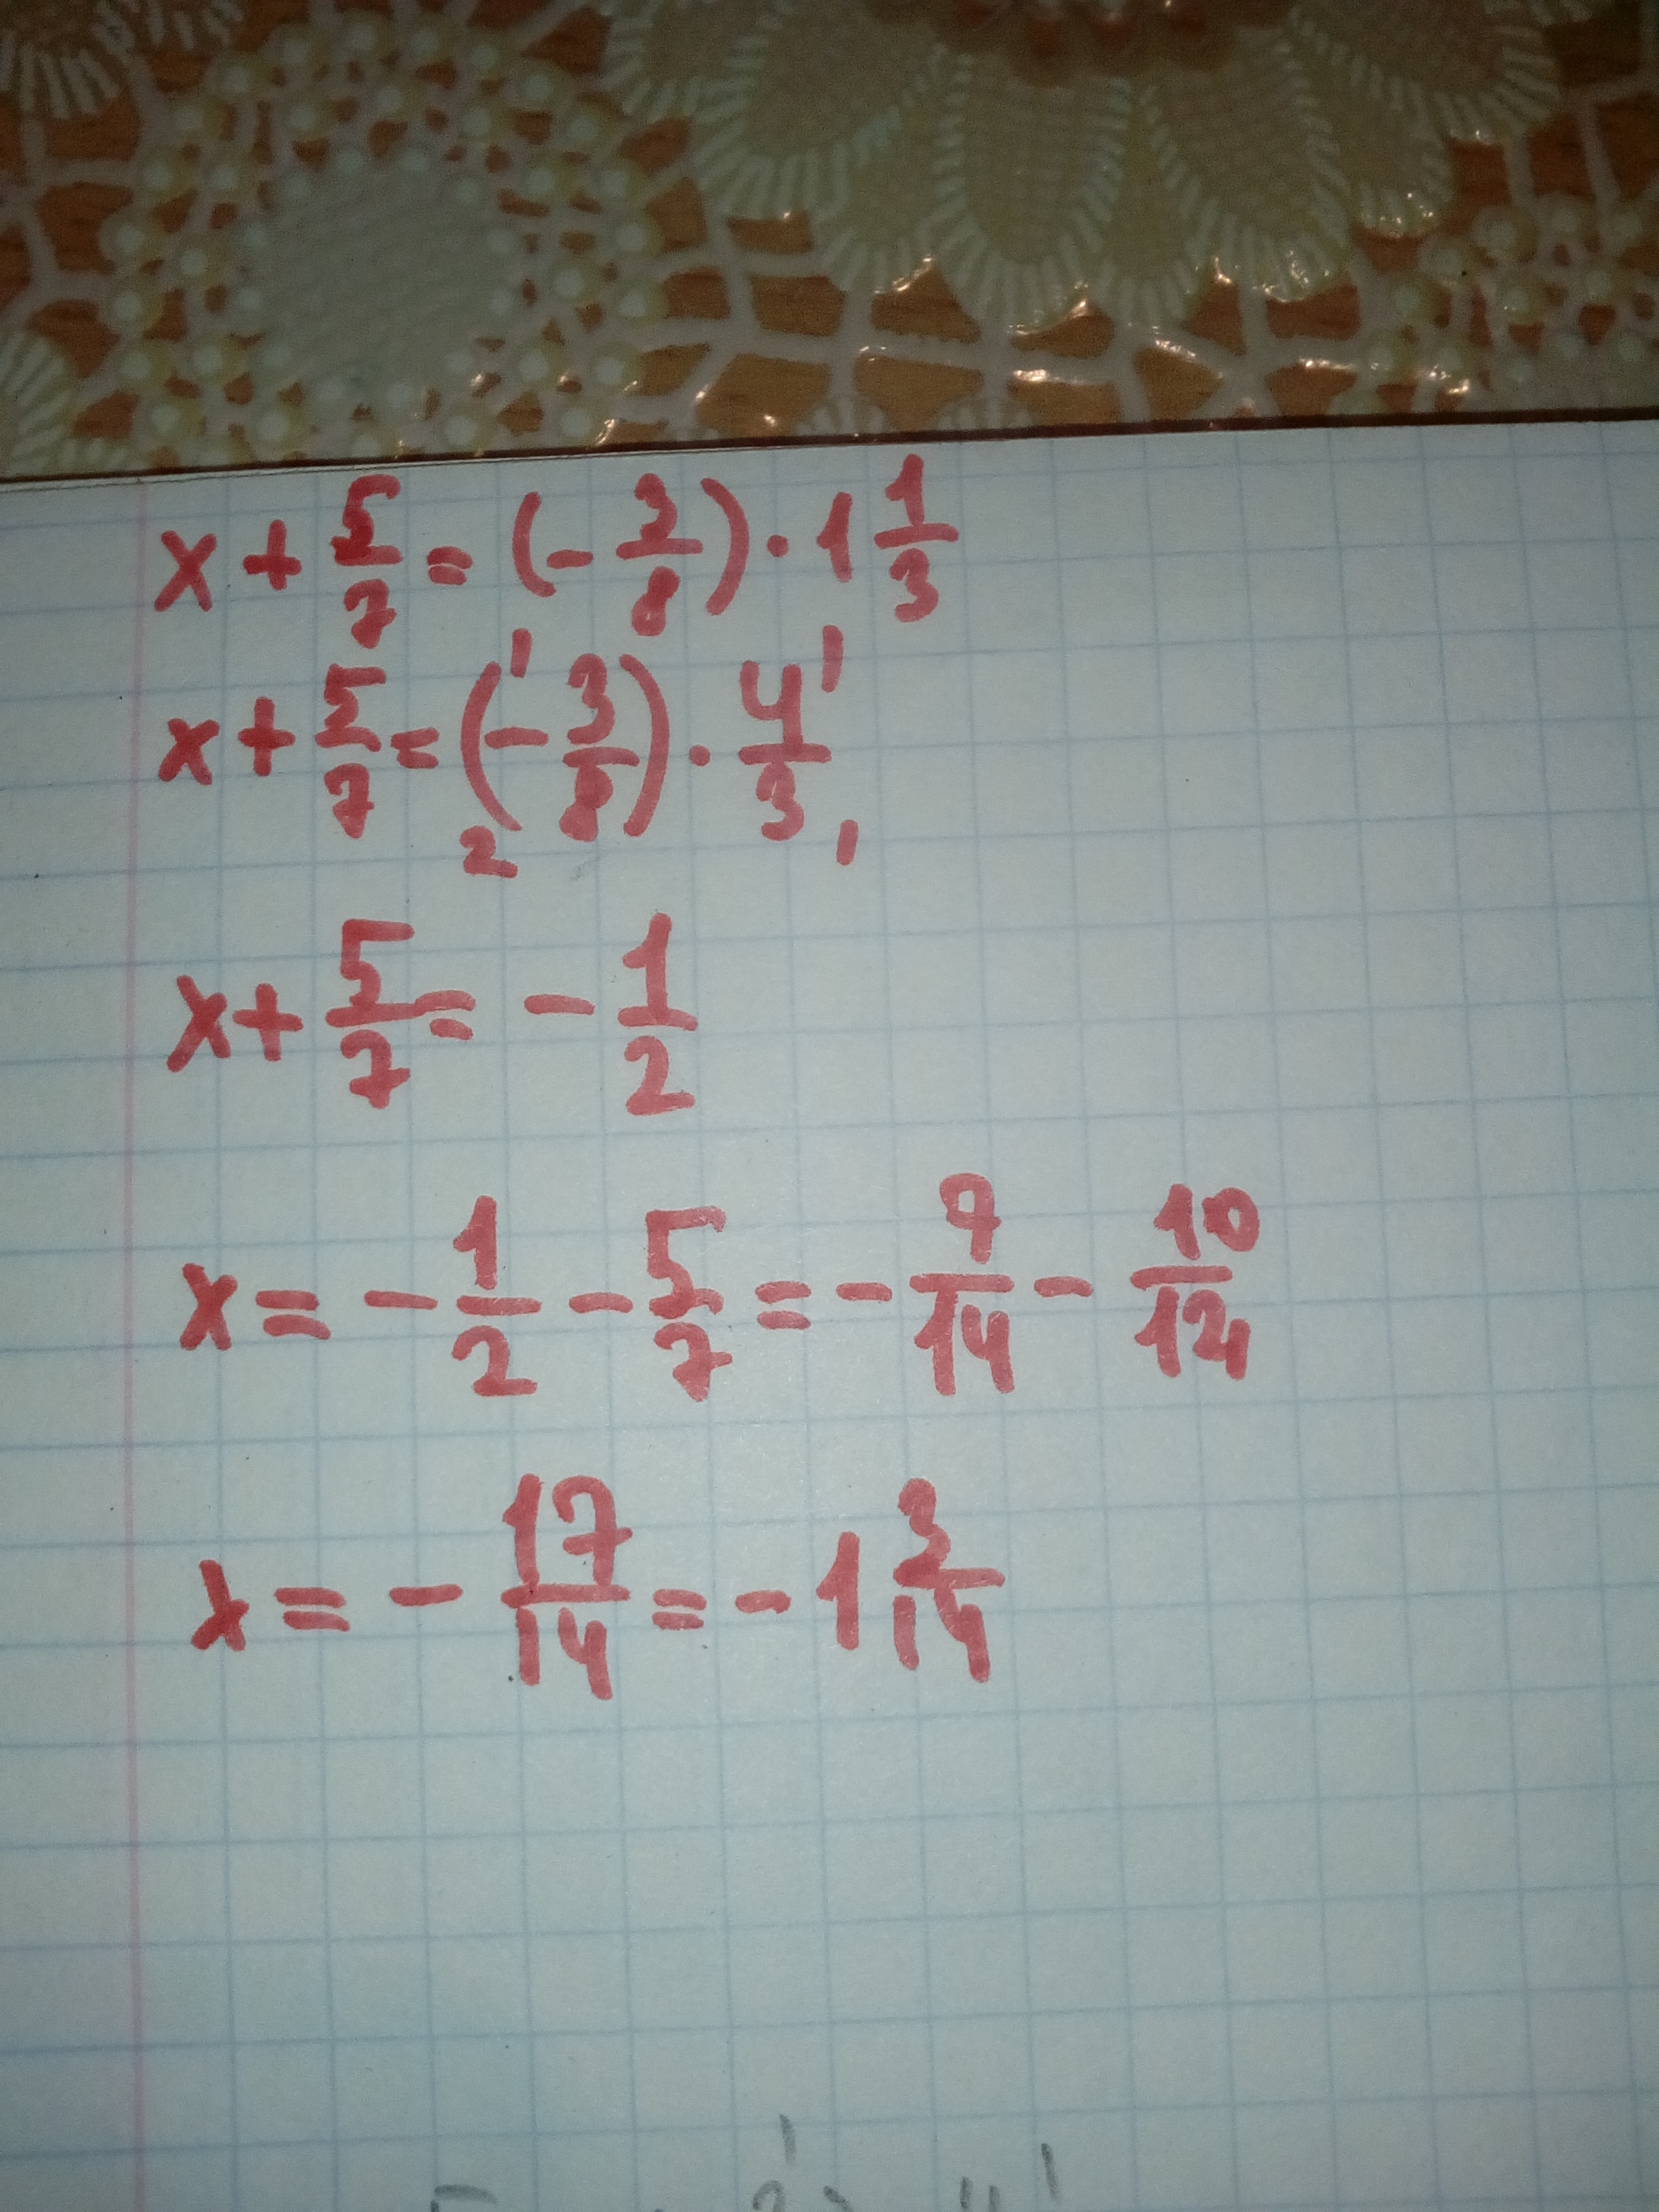 x + 5/7 = (- 3/8) · 1 1/3
x + 5/7 = (- 3/8) · 4/3 1 2 1 1
x + 5/7 = - 1/2
x = - 1/2 - 5/7 = - 7/14 - 10/14
x = - 17/14 = - 1 3/14